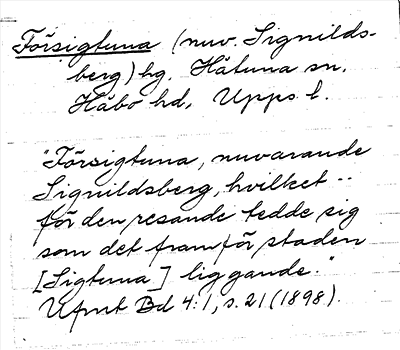 Försigtuna (nuv. Signilds-
berg) hg. Håtuna sn.
Håbo hd, Upps. l.
"Försigtuna, nuvarande
Signildsberg, hvilket --
för den resande tedde sig
som det framför staden
[Sigtuna] liggande."
Ufmt Bd 4:1, s. 21 (1898).